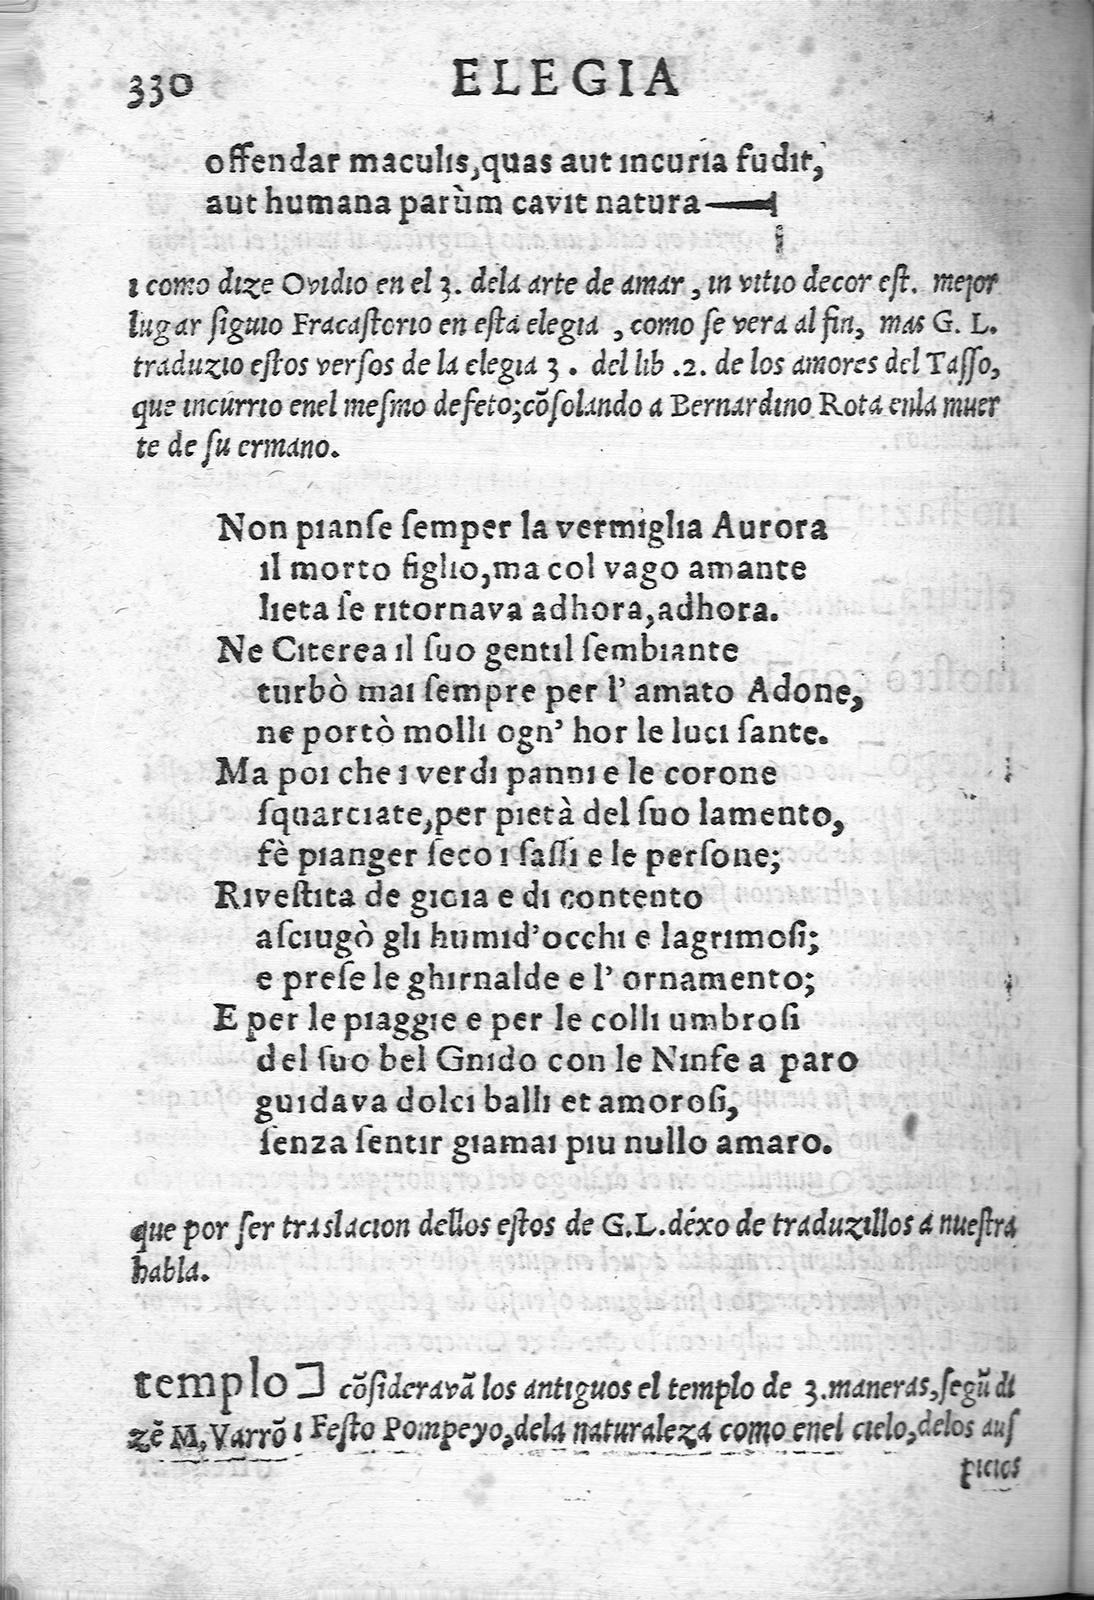 330 ELEGIA
offendar maculıs,quas aut ıncurıa fudıt,
aut humana parùm cavıt natura—
ı como dıze Ovıdıo en el 3. dela arte de amar , ın vıtıo decor eſt. mejor
lugar ſıguıo Fracaſtorıo en eſta elegıa , como ſe vera al fın, mas G. L.
traduzıo eſtos verſos de la elegıa 3 . del lıb .2. de los amores del Taſſo,
que ıncurrıo enel meſmo defeto;cõſolando a Bernardıno Rota enla muer
te de ſu ermano.
Non pıanſe ſemper la vermıglıa Aurora
ıl morto fıglıo,ma col vago amante
lıeta ſe rıtornava adhora,adhora.
Ne Cıterea ıl ſuo gentıl ſembıante
turbò maı ſempre per l' amato Adone,
ne portò mollı ogn' hor le lucı ſante.
Ma poı che ı verdı pannı e le corone
ſquarcıate,per pıetà del ſuo lamento,
fè pıanger ſeco ı ſaſſı e le perſone;
Rıveſtıta de gıoıa e dı contento
aſcıugò glı humıd'occhı e lagrımoſı;
e preſe le ghırnalde e l' ornamento;
E per le pıaggıe e per le collı umbroſı
del ſuo bel Gnıdo con le Nınfe a paro
guıdava dolcı ballı et amoroſı,
ſenza ſentır gıamaı pıu nullo amaro.
que por ſer traslacıon dellos eſtos de G.L.dexo de traduzıllos a nueſtra
habla.
templo] cõſıderavã los antıguos el templo de 3.maneras,ſegũ dı
zẽ M.Varrõ ı Feſto Pompeyo,dela naturaleza como enel cıelo,delos auſ
pıcıos